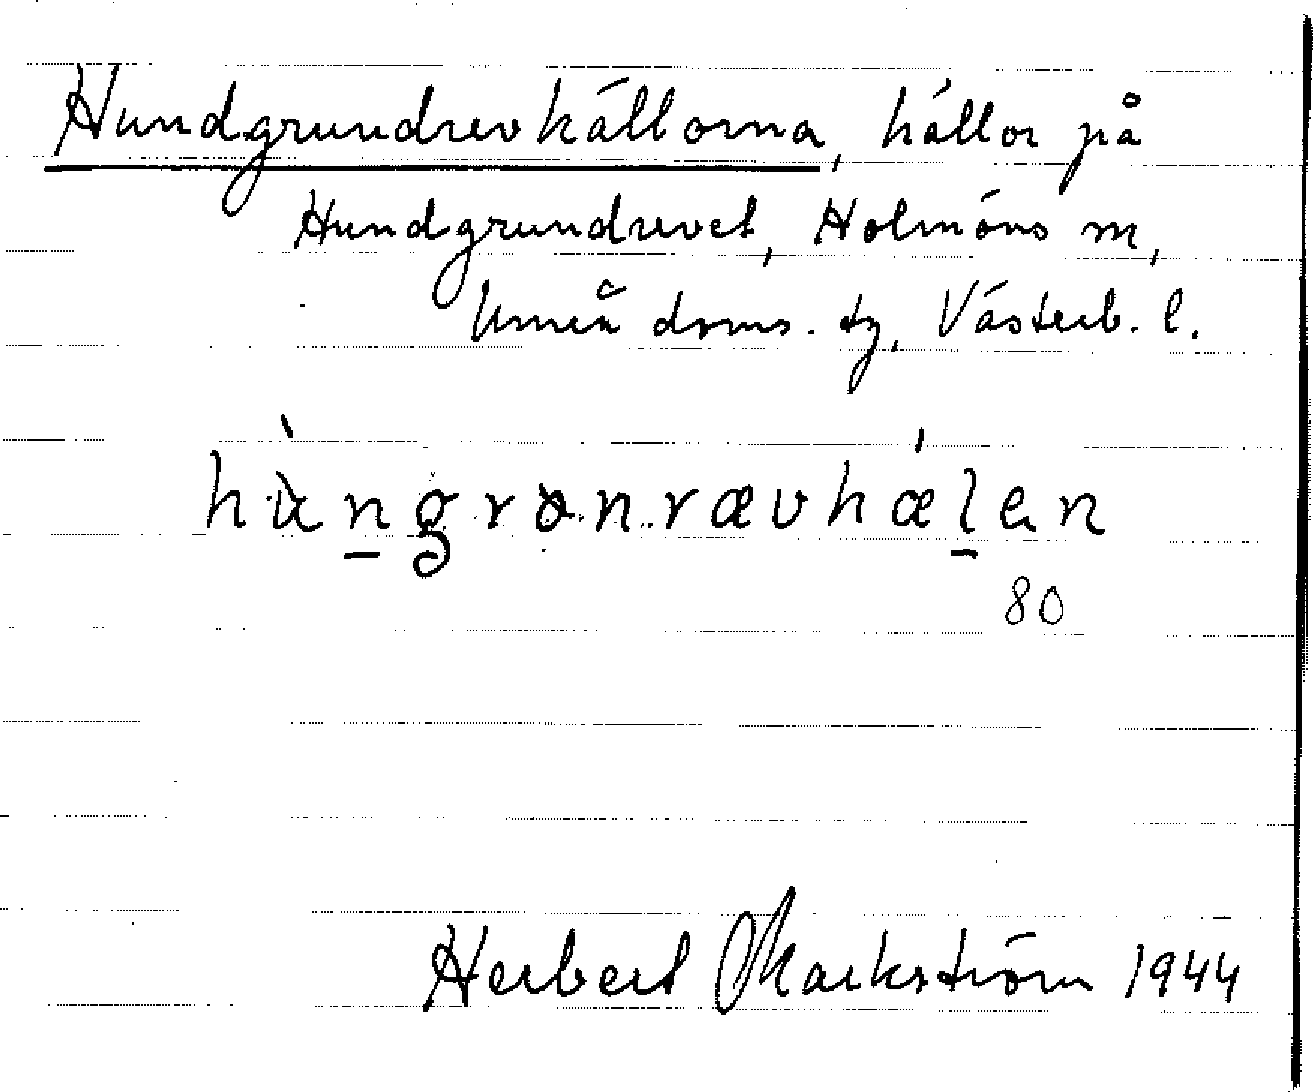 Hundgrundrevhällorna, hällor på
Hundgrundrevet, Holmöns m,
Umeå doms. tg, Västerb. l.
hùn̲grɷnrævhæl̲en
80
Herbert Markström 1944